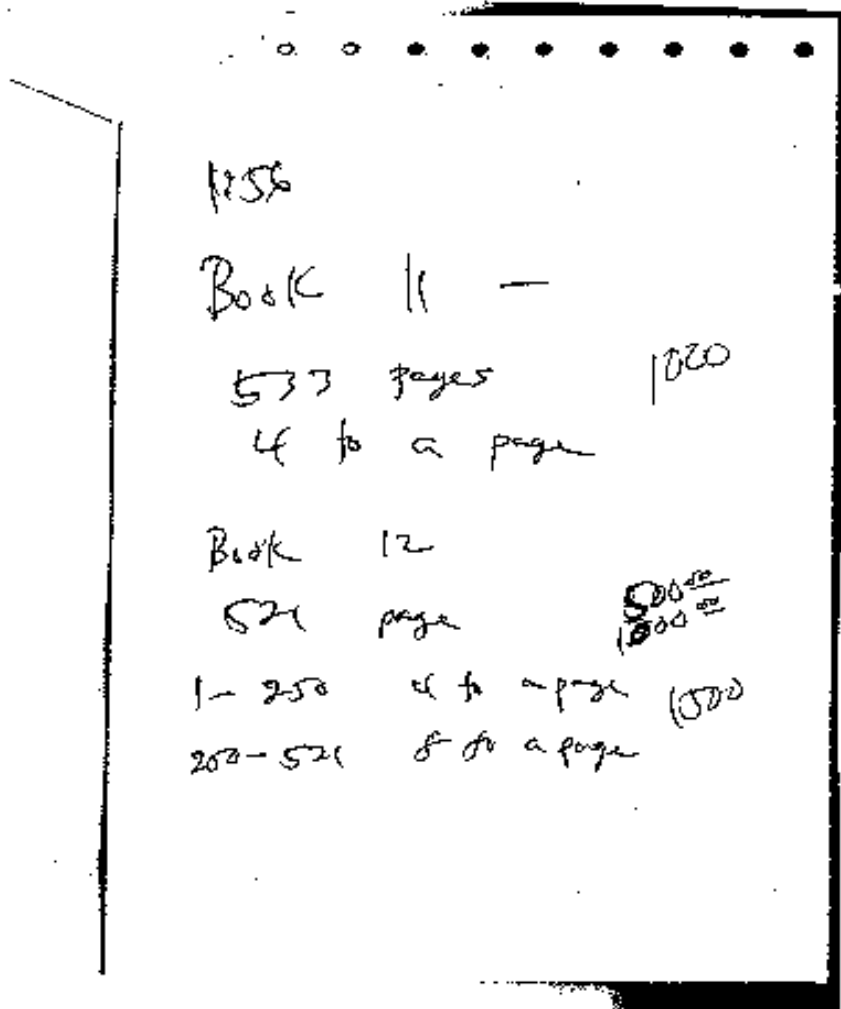 1256
Book 11 —
533 pages 1020
4 to a page
Book 12
521 page 500 00
1000 00
1 - 250 4 to a page 1500
200 - 521 8 to a page